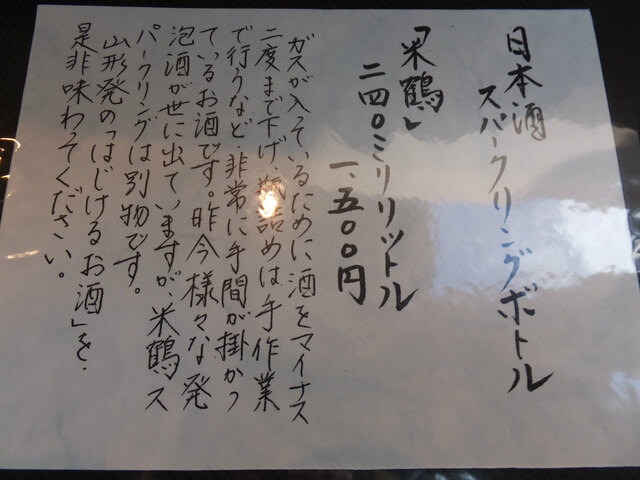 日本酒
スパークリングボトル
「米鶴」
二四〇ミリリットル
一、五〇〇円
ガスが入っているために酒をマイナス
二度まで下げ、瓶詰めは手作業
で行うなど、非常に手間が掛かっ
ているお酒です。昨今様々な発
泡酒が世に出ていますが、米鶴ス
パークリングは別物です。
山形発の「はじけるお酒」を、
是非味わってください。